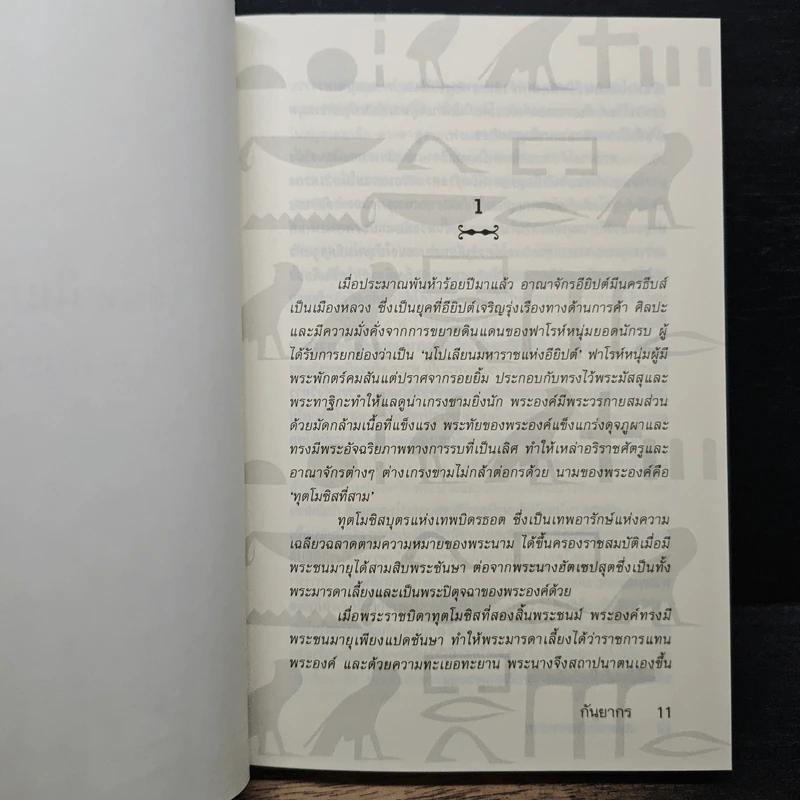 1
เมื่อประมาณพันห้าร้อยปีมาแล้ว อาณาจักรอียิปต์มีนครธีบส์
เป็นเมืองหลวง ซึ่งเป็นยุคที่อียิปต์เจริญรุ่งเรืองทางด้านการค้า ศิลปะ
และมีความมั่งคั่งจากการขยายดินแดนของฟาโรห์หนุ่มยอดนักรบ ผู้
ได้รับการยกย่องว่าเป็น ‘นโปเลียนมหาราชแห่งอียิปต์’ ฟาโรห์หนุ่มผู้มี
พระพักตร์คมสันแต่ปราศจากรอยยิ้ม ประกอบกับทรงไว้พระมัสสุและ
พระทาฐิกะทำให้แลดูน่าเกรงขามยิ่งนัก พระองค์มีพระวรกายสมส่วน
ด้วยมัดกล้ามเนื้อที่แข็งแรง พระทัยของพระองค์แข็งแกร่งดุจภูผาและ
ทรงมีพระอัจฉริยภาพทางการรบที่เป็นเลิศ ทำให้เหล่าอริราชศัตรูและ
อาณาจักรต่างๆ ต่างเกรงขามไม่กล้าต่อกรด้วย นามของพระองค์คือ
‘ทุตโมซิสที่สาม’
ทุตโมซิสบุตรแห่งเทพบิดรธอต ซึ่งเป็นเทพอารักษ์แห่งความ
เฉลียวฉลาดตามความหมายของพระนาม ได้ขึ้นครองราชสมบัติเมื่อมี
พระชนมายุได้สามสิบพระชันษา ต่อจากพระนางฮัตเซปสุตซึ่งเป็นทั้ง
พระมารดาเลี้ยงและเป็นพระปิตุจฉาของพระองค์ด้วย
เมื่อพระราชบิดาทุตโมซิสที่สองสิ้นพระชนม์ พระองค์ทรงมี
พระชนมายุเพียงแปดชันษา ทำให้พระมารดาเลี้ยงได้ว่าราชการแทน
พระองค์ และด้วยความทะเยอทะยาน พระนางจึงสถาปนาตนเองขึ้น
กันยากร 11